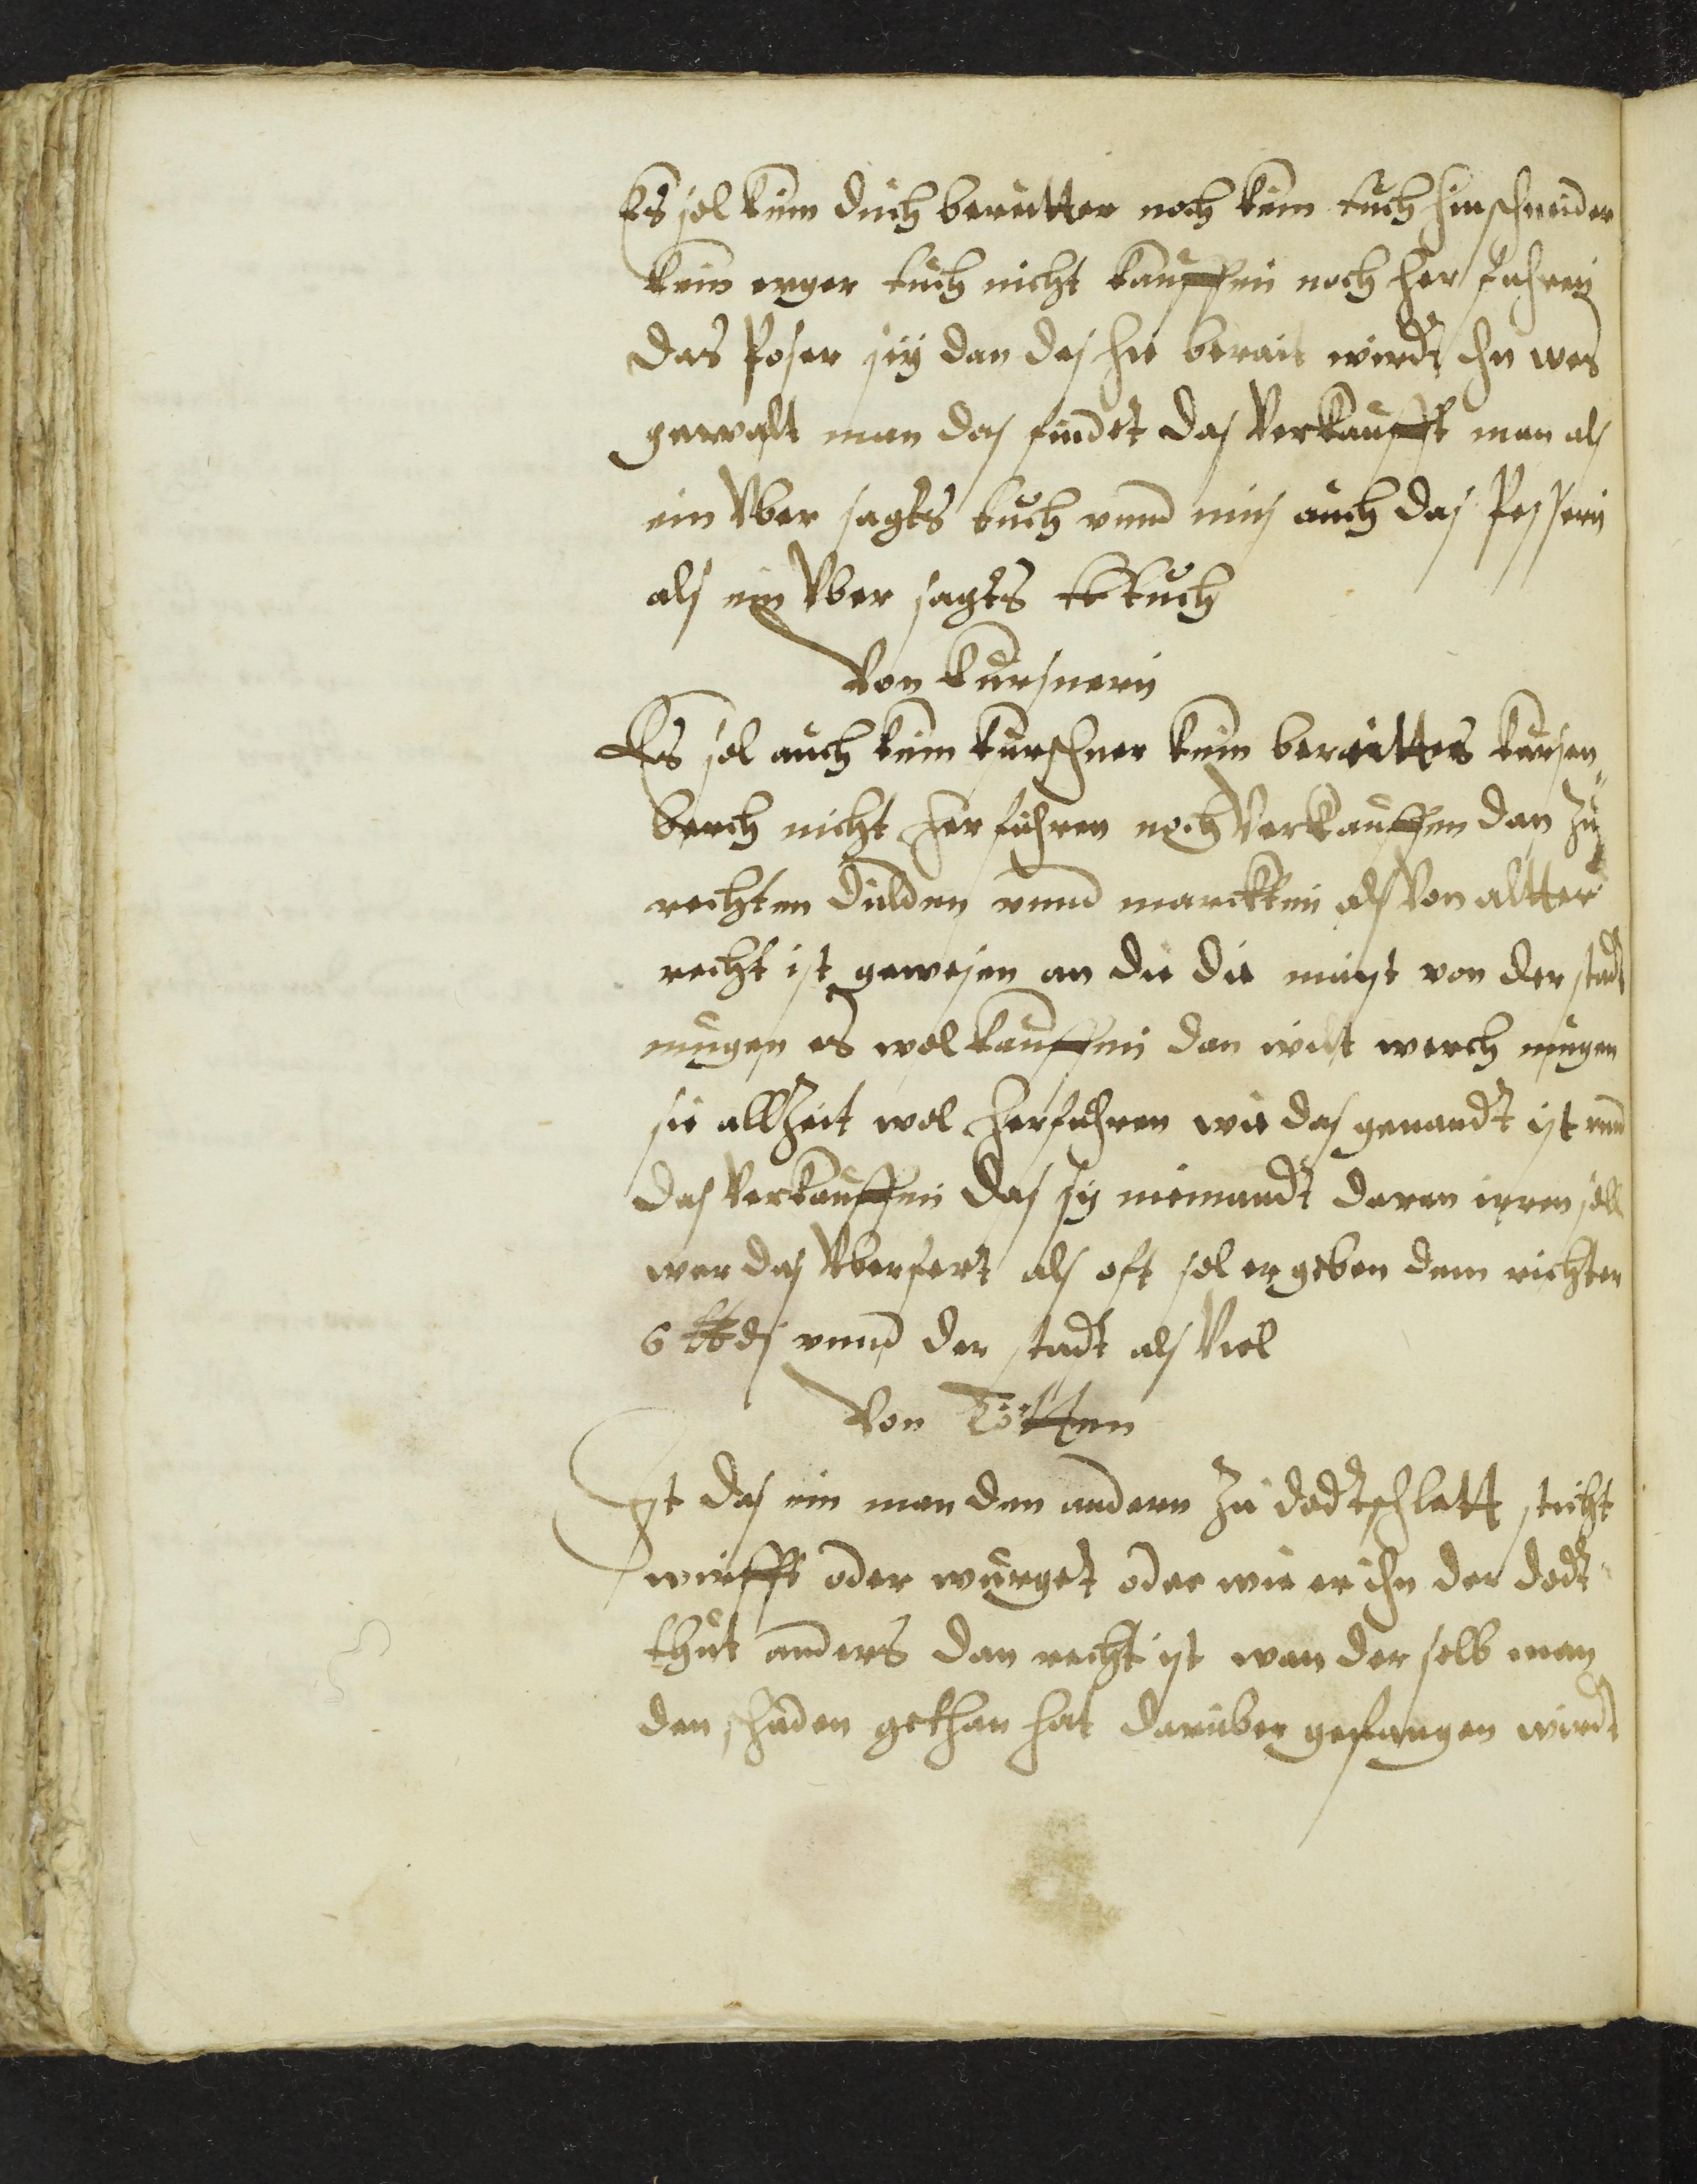 Es sol kein duch beraitter noch kein tuch hinschneider
kein erger tuch nicht kauffen noch her fuhren
das poser sey dan das hie berait wirdt Jn wes
gewalt man das findet das verkaufft man als
ein vber sagts tuch vnnd mus auch das pessern
als ein vber sagts tuch
Von kursnern
Es sol auch kein kurschner kein beraittes kursen„
werch nicht her fuhren noch verkauffen dan zu
rechten dulden vnnd marckten als von altter
recht ist gewesen an die die maist von der stadt
mugen es wol kauffen dan wilt werch mugen
sie allzeit wol herfuhren wie das genandt ist vnnd
das verkauffen das sy niemandt daran irren soll
wer das vberfert als oft sol er geben dem richter
6 ℔ ₰ vnnd der stadt als viel
Von Tötten
Jst das ein man den andern zu dodt schlett sticht
wirfft oder würget oder wie er ihn der dodt
thut anders dan recht ist wan der selb man
den schaden gethan hat daruber gefangen wirdt